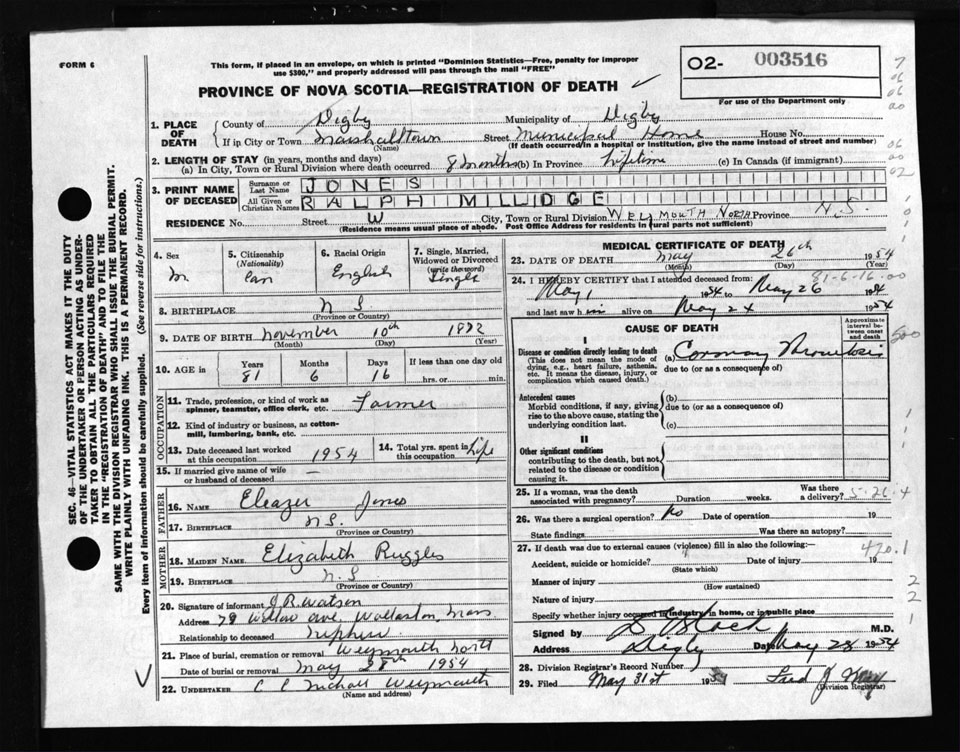 FORM 6
This form, if placed in an envelope, on which is printed "Dominion Statistics—Free, penalty for improper
use $300," and properly addressed will pass through the mail "FREE"
PROVINCE OF NOVA SCOTIA—REGISTRATION OF DEATH
O2- 003516
For use of the Department only
1. PLACE OF DEATH
County of Digby Municipality of Digby
If in City or Town Marshalltown Street Municipal Home House No.
(Name) (If death occurred in a hospital or institution, give the name instead of street and number)
2. LENGTH OF STAY (in years, months and days)
(a) In City, Town or Rural Division where death occurred 8 months (b) In Province Lifetime (c) In Canada (if immigrant)
3. PRINT NAME OF DECEASED
Surname or Last Name JONES
All Given or Christian Names RALPH MILLIDGE
RESIDENCE No. Street W City, Town or Rural Division WEYMOUTH NORTH Province N.S.
(Residence means usual place of abode. Post Office Address for residents in rural parts not sufficient)
4. Sex
m
5. Citizenship
(Nationality)
Can
6. Racial Origin
English
7. Single, Married,
Widowed or Divorced
(write the word)
Single
8. BIRTHPLACE N S
(Province or Country)
9. DATE OF BIRTH November 10th 1872
(Month) (Day) (Year)
10. AGE in
Years Months Days If less than one day old
81 6 16 hrs. or min.
OCCUPATION
11. Trade, profession, or kind of work as
spinner, teamster, office clerk, etc. Farmer
12. Kind of industry or business, as cotton-
mill, lumbering, bank, etc.
13. Date deceased last worked
at this occupation 1954
14. Total yrs. spent in
this occupation Life
15. If married give name of wife
or husband of deceased —
FATHER
16. NAME Eleazer Jones
17. BIRTHPLACE N S.
(Province or Country)
MOTHER
18. MAIDEN NAME Elizabeth Ruggles
19. BIRTHPLACE N. S
(Province or Country)
20. Signature of informant J R Watson
Address 79 Willow ave. Wollaston, Mass
Relationship to deceased nephew
21. Place of burial, cremation or removal Weymouth North
Date of burial or removal May 28th 1954
22. UNDERTAKER Weymouth
(Name and address)
MEDICAL CERTIFICATE OF DEATH
23. DATE OF DEATH May 26th 1954
(Month) (Day) (Year)
24. I HEREBY CERTIFY that I attended deceased from: 81-6-16.00
May 1 1954 to May 26 1954
and last saw him alive on May 24 1954
CAUSE OF DEATH
Approximate
interval be-
tween onset
and death
I
Disease or condition directly leading to death
(This does not mean the mode of
dying, e.g., heart failure, asthenia,
etc. It means the disease, injury, or
complication which caused death.)
(a) Coronary Thrombosis
due to (or as a consequence of)
Antecedent causes
Morbid conditions, if any, giving
rise to the above cause, stating the
underlying condition last.
(b)
due to (or as a consequence of)
(c)
II
Other significant conditions
contributing to the death, but not
related to the disease or condition
causing it.
25. If a woman, was the death
associated with pregnancy? Duration weeks.
Was there
a delivery? 5-26-4
26. Was there a surgical operation? No Date of operation 19
State findings Was there an autopsy?
27. If death was due to external causes (violence) fill in also the following:— 420.1
Accident, suicide or homicide? Date of injury 19
(State which)
Manner of injury
(How sustained)
Nature of injury
Specify whether injury occurred in industry, in home, or in public place
Signed by M.D.
Address Digby Date May 28 1954
28. Division Registrar's Record Number
29. Filed May 31st 1954
(Division Registrar)
SEC. 46—VITAL STATISTICS ACT MAKES IT THE DUTY
OF THE UNDERTAKER OR PERSON ACTING AS UNDER-
TAKER TO OBTAIN ALL THE PARTICULARS REQUIRED
IN THE "REGISTRATION OF DEATH" AND TO FILE THE
SAME WITH THE DIVISION REGISTRAR WHO SHALL ISSUE THE BURIAL PERMIT.
WRITE PLAINLY WITH UNFADING INK. THIS IS A PERMANENT RECORD.
Every item of information should be carefully supplied. (See reverse side for instructions.)